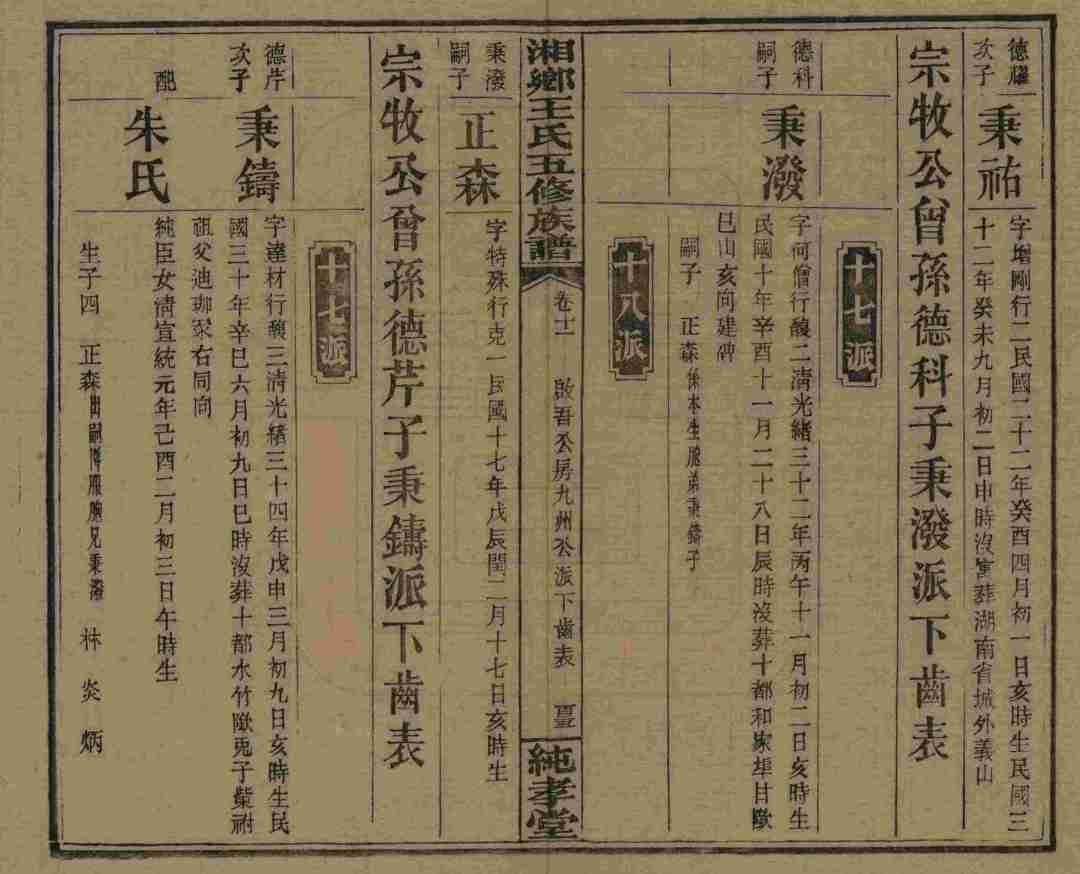 德耀
次子
秉祐
字增剛行二民國二十二年癸酉四月初一日亥時生民國三
十二年癸未九月初二日申時沒寓葬湖南省城外義山
宗牧公曾孫德科子秉潑派下齒表
十七派
德科
嗣子
秉潑
字何僧行馥二清光緒三十二年丙午十一月初二日亥時生
民國十年辛酉十一月二十八日辰時沒葬十都和家埠甘歐
巳山亥向建碑
嗣子 正森係本生胞弟秉鑄子
十八派
湘鄉王氏五修族譜
卷十一
啟吾公房九州公派下齒表
純孝堂
秉潑
嗣子
正森
字特殊行克一民國十七年戊辰閏二月十七日亥時生
宗牧公曾孫德芹子秉鑄派下齒表
十七派
德芹
次子
秉鑄
字達材行馥三清光緒三十四年戊申三月初九日亥時生民
國三十年辛巳六月初九日巳時沒葬十都水竹歐兎子䉼祔
祖父迪珈冢右同向
配
朱氏
純臣女清宣統元年己酉二月初三日午時生
生子四 正森出嗣傅服胞兄秉潑 林 炎 炳